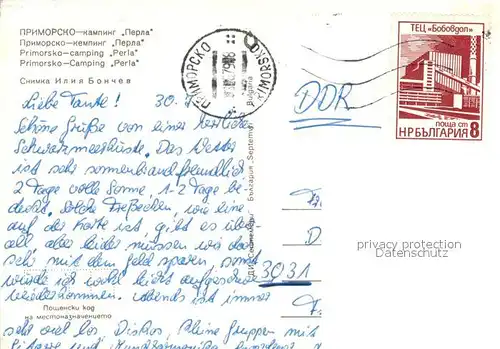 ПРИМОРСКО—кампинг „Перла"
Приморско—кемпинг „Перла"
Primorsko—camping „Perla"
Primorsko—Camping „Perla"
Снимка Илия Бончев
ПРИМОРСКО
PRIMORSKO
ТЕЦ „Бобовдол"
поща ст
НР БЪЛГАРИЯ 8
DDR
Liebe Tante! 30.
Schöne Grüße von einer herrlichen
Schwarzmeerküste. Das Wetter
ist sehr sonnenbrandfreundlich
2 Tage volle Sonne, 1-2 Tage be
deckt. Solche Freßecken, wie eine
auf der Karte ist, gibt es über
all, aber leider müssen wir da
sehr mit dem Geld sparen, sonst
würde ich wohl leicht aufgehend
wiederkommen. Abends ist immer
sehr viel los Diskos, kleine Gruppen mit
Gitarre und
България „Septemvri" Bulgaria
3031
D
Пощенски код
на местоназначението
privacy protection
Datenschutz